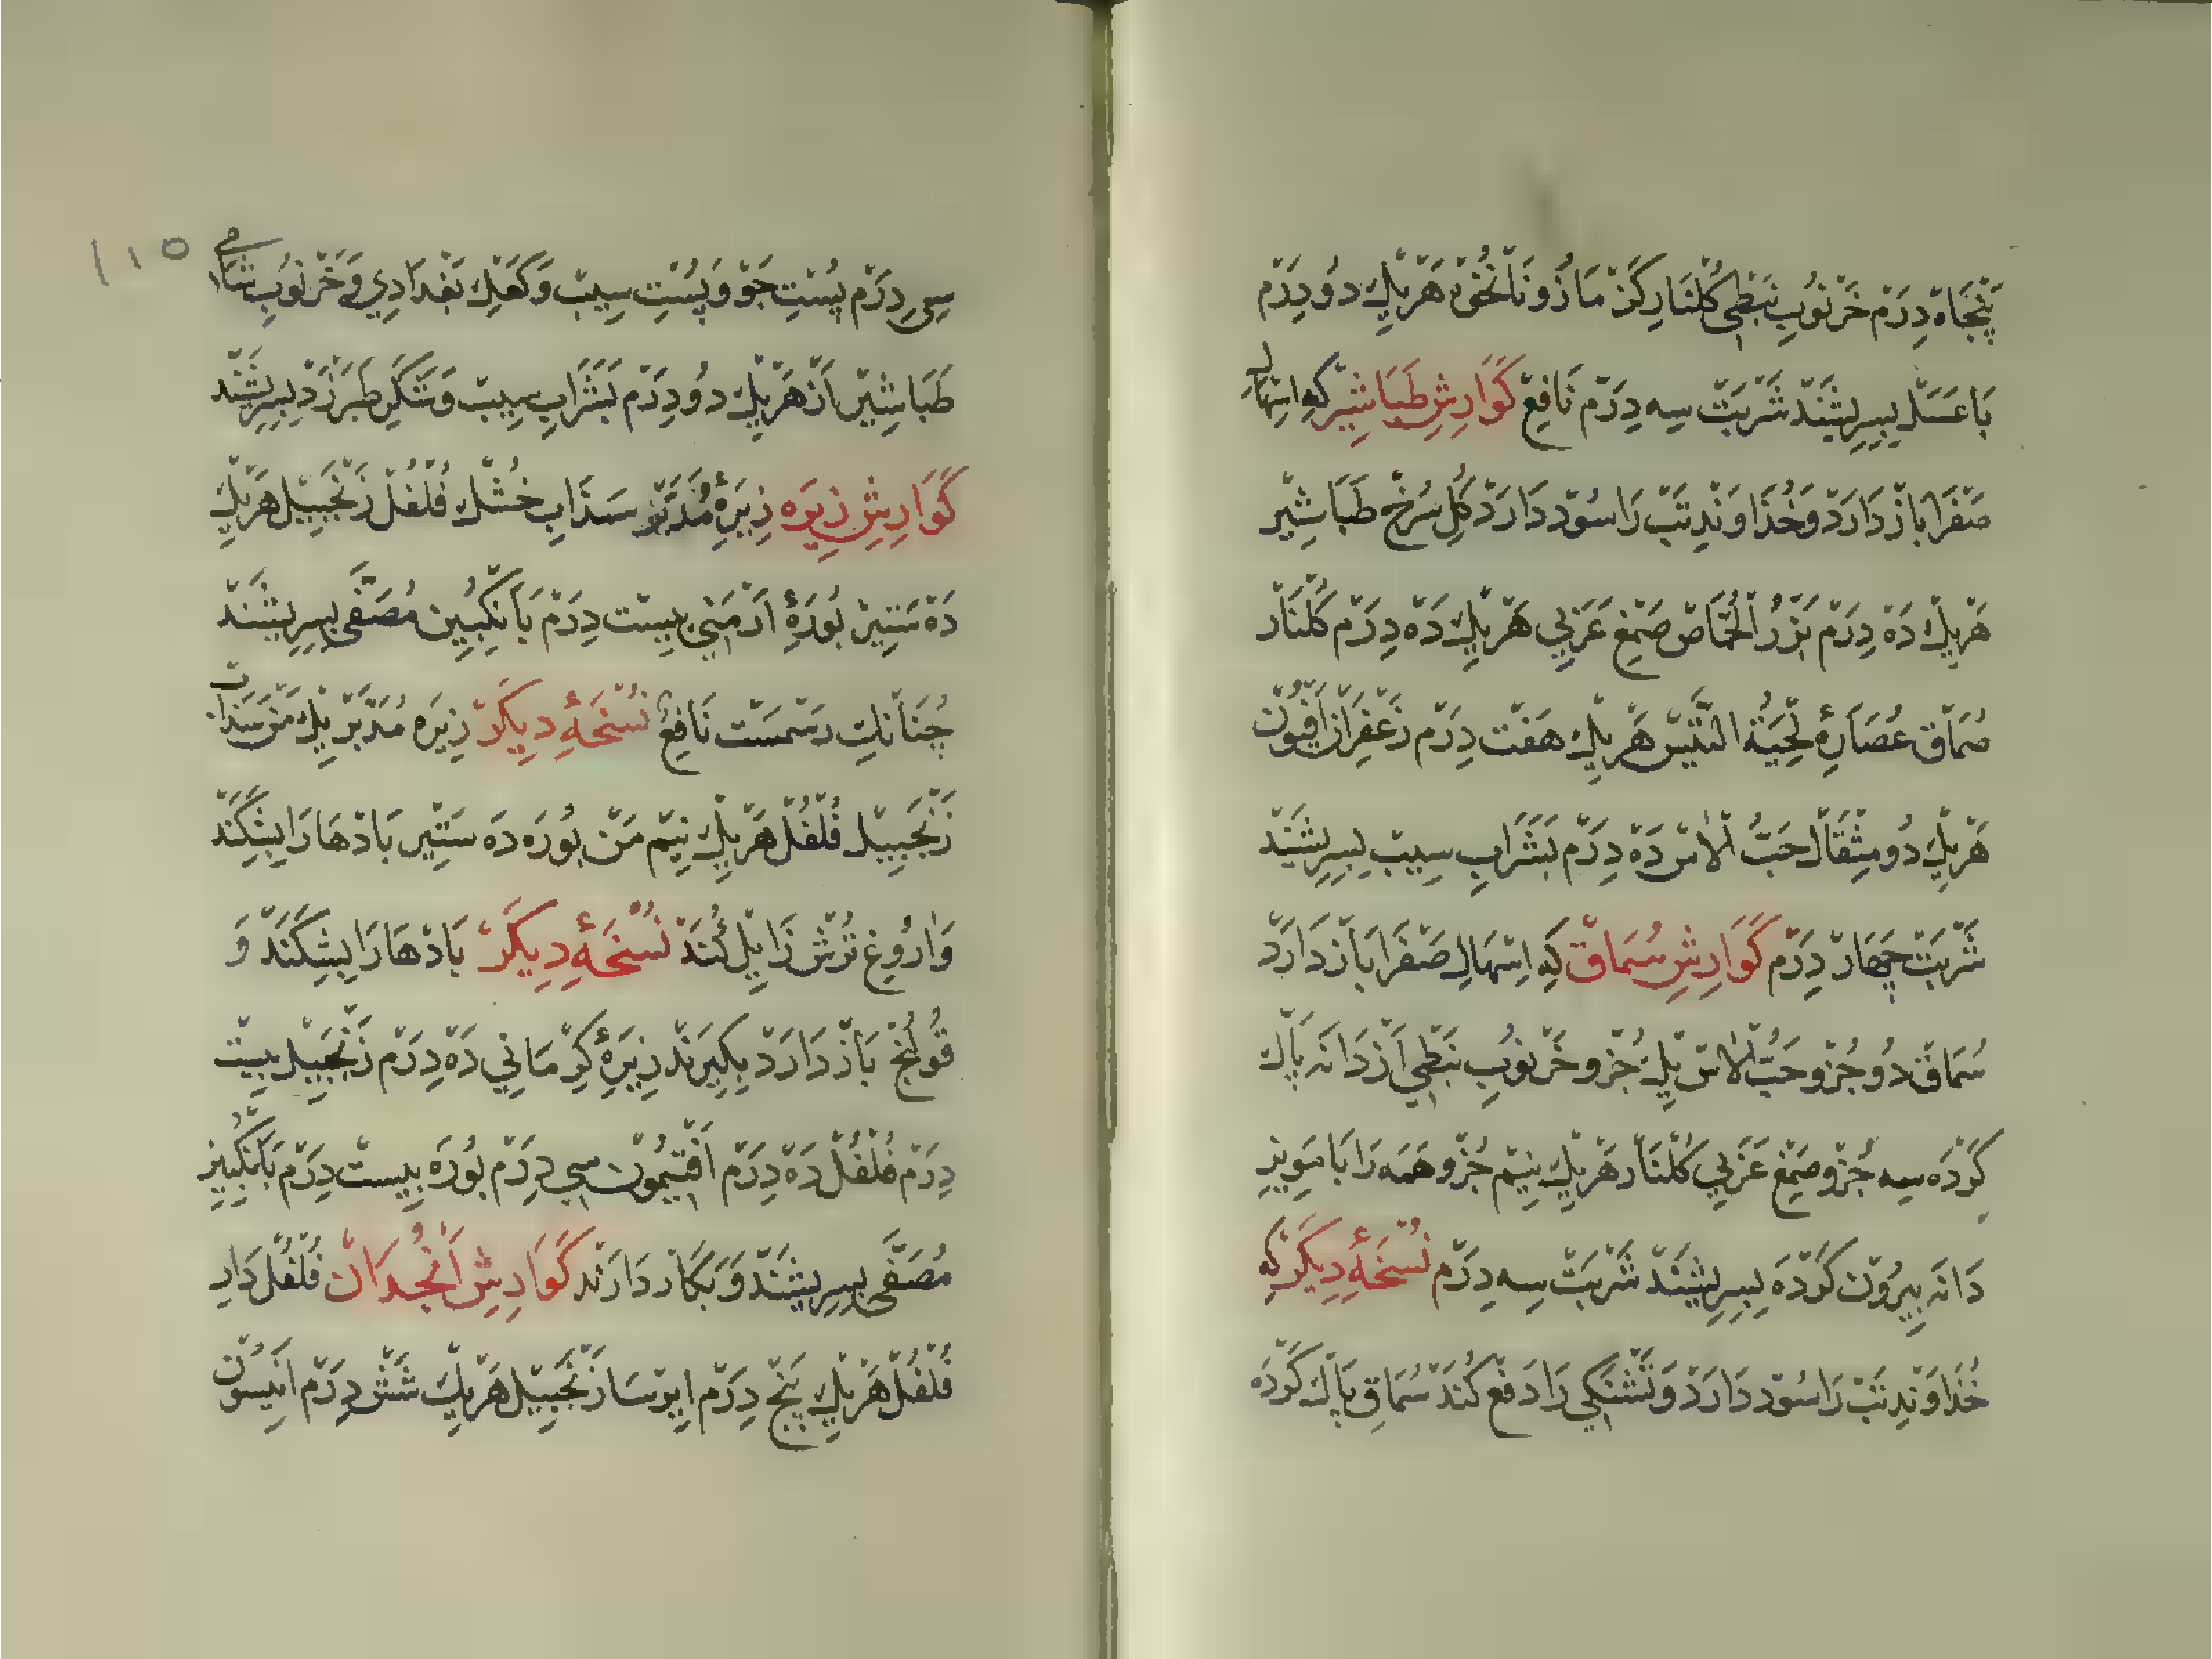 پَنْجَاه دِرَمْ خَرْنُوبِ نَبَطِی گُلْنَار کَزْمَازُو نَانْخُوَه هَرْیِکِ دُودِرَمْ
بَاعَسَل بِسِرِیشَنْد شَرْبَتْ سِه دِرَمْ نَافِع گَوَارِشِ طَبَاشِیرْ کِه اِسْهَالِ
صَفْرَا بَازْدَارَدْ وَخُذَاوَنْدِ تَبْ رَا سُوْد دَارَدْ گُلِ سُرْخْ طَبَاشِیرْ
هَرْیِکِ دَهْ دِرَمْ بَزْرُ الْحُمَّاضْ صَمْغِ عَرَبِي هَرْیِکِ دَهْ دِرَمْ گُلْنَارْ
سُمَاقْ عُصَارَهٔ لِحْیَةُ التَّیْسْ هَرْیِکِ هَفْت دِرَمْ زَعْفَرَانْ اَفْیُونْ
هَرْیِکِ دُو مِثْقَالْ حَبُّ الْاٰسْ دَهْ دِرَمْ بَشَرَابِ سِیبْ بِسِرِیشَنْدْ
شَرْبَتْ چَهَارْ دِرَمْ گَوَارِشِ سُمَاقْ کِه اِسْهَالِ صَفْرَا بَازْدَارَدْ
سُمَاقْ دُو جُزْو حَبُّ الْاٰسْ یِکِ جُزْو خَرْنُوبِ نَبَطِي اَزْ دَانَه پَاكْ
کَرْدَه سِه جُزْو صَمْغِ عَرَبِي گُلْنَارْ هَرْیِکِ نِیمْ جُزْو هَمَه رَا بَا مَوِیزِ
دَانَه بِیرُونْ کَرْدَه بِسِرِیشَنْدْ شَرْبَتْ سِه دِرَمْ نُسْخَهٔ دِیگَرْ کِه
خُذَاوَنْدِ تَبْ رَا سُوْد دَارَدْ وَتَشْنَگِي رَا دَفْع کُنَدْ سُمَاقِ پَاكْ کَرْدَه
سِی دِرَمْ پِسْتِ جَوْ وَپِسْتِ سِیبْ وَکَعْكِ بَغْدَادِي وَخَرْنُوبِ شَامِی
طَبَاشِیرْ اَزْ هَرْیِکِ دُو دِرَمْ بَشَرَابِ سِیبْ وَشَکَرِ طَبَرْزَدْ بِسِرِیشَنْد
گَوَارِشِ زِیرَه زِیرَهٔ مُدَبَّرْ سَذَابِ خُشْكْ فُلْفُلْ زَنْجَبِیلْ هَرْیِکِ
دَهْ سَتِیرْ بُورَهٔ اَرْمَنِي بِیسْت دِرَمْ بَاَنْگَبِینِ مُصَفَّی بِسِرِیشَنْدْ
چُنَانْكِ رَسْمَسْت نَافِعْ نُسْخَهٔ دِیگَرْ زِیرَه مُدَبَّرْ یِکِ مَنْ سَذَابْ
زَنْجَبِیلْ فُلْفُلْ هَرْیِکِ نِیمْ مَنْ بُورَه دَه سَتِیرْ بَادْهَا رَا بِشِکَنَدْ
وَارُوغِ تُرْشْ زَایِلْ کُنَدْ نُسْخَهٔ دِیگَرْ بَادْهَا رَا بِشِکَنَدْ وَ
قُولَنْج بَازْدَارَدْ بِگِیرَنْد زِیرَهٔ کِرْمَانِي دَهْ دِرَمْ زَنْجَبِیلْ بِیسْتْ
دِرَمْ فُلْفُلْ دَهْ دِرَمْ اَفْتِیمُونْ سِي دِرَمْ بُورَه بِیسْتْ دِرَمْ بَاَنْگَبِینِ
مُصَفَّی بِسِرِیشَنْدْ وَبَکَار دَارَنْد گَوَارِشِ اَنْجُدَانْ فُلْفُلْ دَارِ
فُلْفُلْ هَرْیِکِ پَنْجْ دِرَمْ اِیرْسَا زَنْجَبِیلْ هَرْیِکِ شَشْ دِرَمْ اَنِیسُونْ
۱۱۵